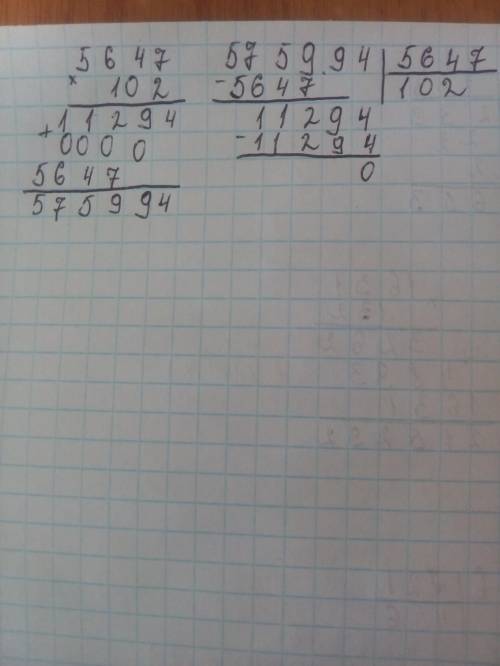 5647
× 102
+ 11294
0000
5647
575994
575994 | 5647
- 5647 | 102
11294
- 11294
0